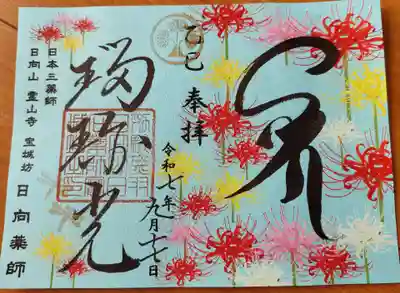 乙巳
奉拝
令和七年
九月十七日
瑠璃光
日本三薬師
日向山 霊山寺 宝城坊 日向薬師